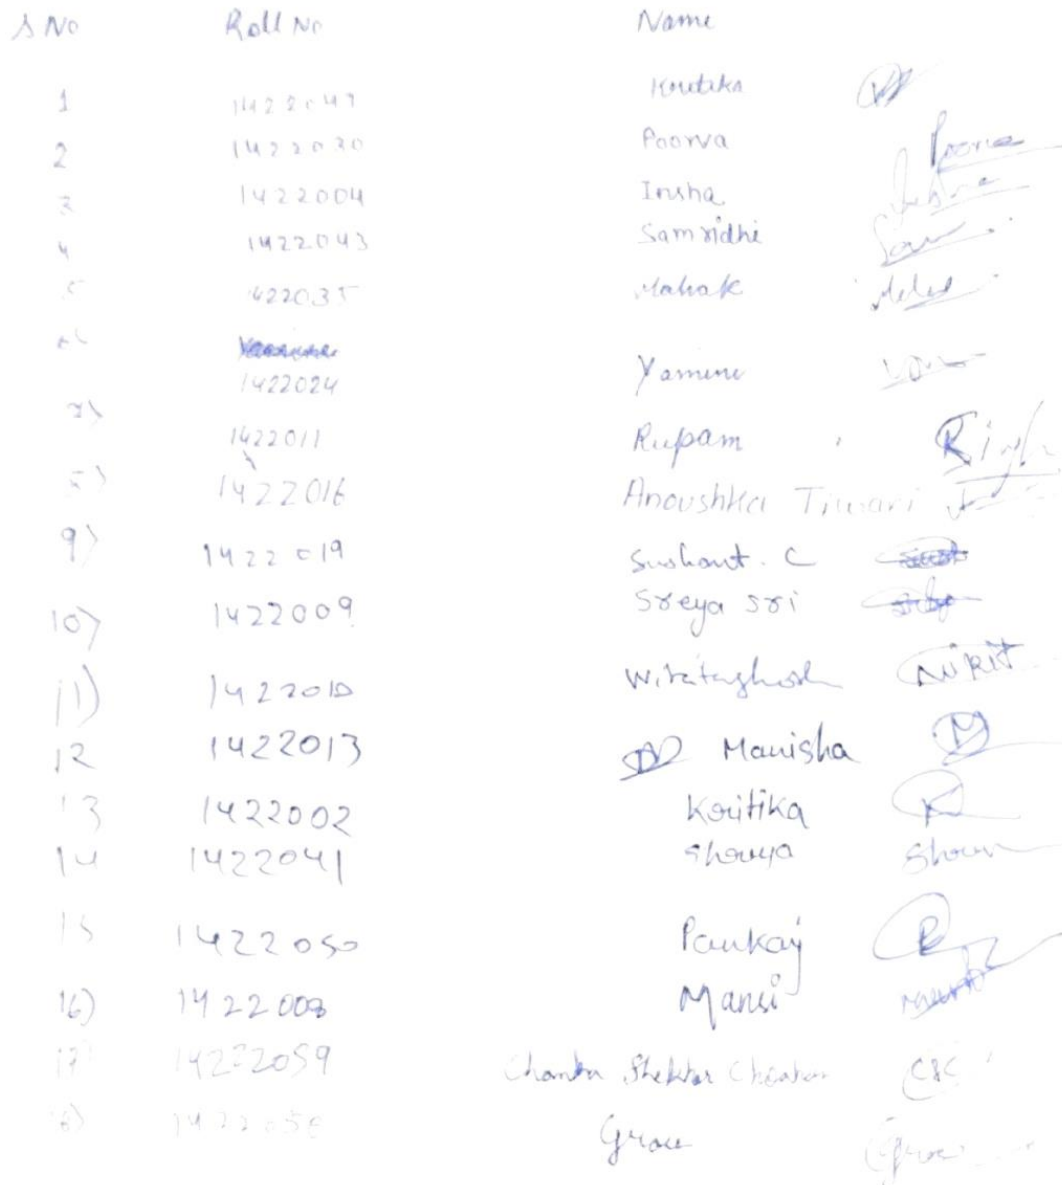 S No Roll No Name
1 1422047 Kritika
2 1422030 Poorva Poorva
3 1422004 Insha
4 1422043 Samridhi
5 1422035 Mahak
6
1422024 Yamini
7) 1422011 Rupam
8) 1422016 Anoushka Tiwari
9) 1422019 Sushant. C
10) 1422009 Sreya sri
11) 1422010
12 1422013 Manisha M
13 1422002 Kritika K
14 1422041 Shourya
15 1422050 Pankaj P
16) 1422008 Mansi
17) 1422059 Shekhar CSC
18) Grace